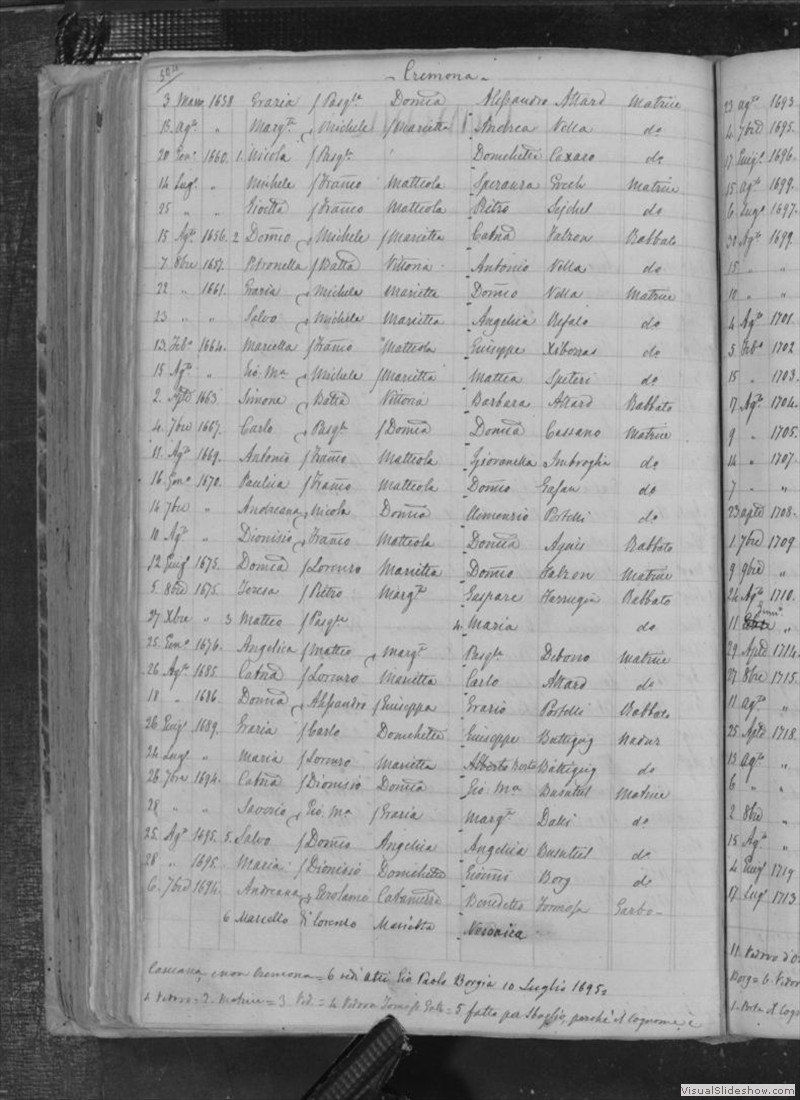 - Cremona -
3 Marzo 1658 Grazia / Pasq.le Domca Alessandro Attard Matrice
15 Ag.to " Marg.ta Michele / Marietta Andrea Vella do
20 Gen.o 1660. 1. Nicola / Pasq.le Domchetta Caxaro do
14 Lug.o " Michele / Franco Matteola Speranza Grech Matrice
25 " " Gioetta / Franco Matteola Pietro Sejchel do
15 Ag.to 1656. 2 Domco Michele / Marietta Catna Falzon Rabbato
7 8bre 1657. Petronella / Batta Vittoria Antonio Vella do
22 " 1661. Grazia Michele Marietta Domco Vella Matrice
23 " " Salvo Michele Marietta Angelica Refalo do
13. Feb.o 1664. Mariella / Franco Matteola Giuseppe Xiberras do
15 Ag.to " Gio Ma Michele / Marietta Mattea Spiteri do
2. 1663. Simone Batta Vittoria Barbara Attard Rabbato
4. 7bre 1667. Carlo Pasq.le / Domca Domca Cassano Matrice
11. Ag.to 1669. Antonio / Franco Matteola Giovanella Imbroglia do
16 Gen.o 1670. Paulica / Franco Matteola Domco Gafan do
14 7bre " Andreana Nicola Domca Portelli do
10. Ag.to " Dionisio Franco Matteola Domca Agius Rabbato
12 Giug.o 1675. Domca / Lorenzo Marietta Domco Falzon Matrice
5. 8bre 1675. Teresa / Pietro Marg.ta Gaspare Farrugia Rabbato
27 Xbre " 3 Matteo / Pasq.le 4. Maria do
25. Gen.o 1676. Angelica / Matteo Marg.ta Pasq.le Debono Matrice
26 Ag.to 1685. Catna / Lorenzo Marietta Carlo Attard do
18 " 1686. Domca Alessandro / Giuseppa Grazio Portelli Rabbato
26 Giug.o 1689. Grazia / Carlo Domchetta Giuseppe Buttigieg Nadur
24 Lug.o " Maria / Lorenzo Marietta Alberto Berto Buttigieg do
26. 7bre 1694. Catna / Dionisio Domca Gio. Ma Busuttil Matrice
28 " " Saverio Gio. Ma / Grazia Marg.ta do
25. Ag.to 1695. 5. Salvo / Domco Angelica Angelica Busuttil do
28 " 1695. Maria / Dionisio Domchetta Gionni Borg do
6. 7bre 1694. Andreana Gerolamo Benedetto Formosa Garbo -
6 Marcello di Lorenzo Marietta Veronica
Caruana, e non Cremona = 6 vedi atti Gio Paolo Borgia 10 Luglio 1695.
= 2. Matrice = 3. = 4. = 5 fatto per sbaglio, perchè il Cognome è
23. ag.to 1693
4. 7bre 1695.
17. Giug.o 1696.
15 ag.to 1699.
6 Lug.o 1697.
30 Ag.to 1699.
15 " "
10 " "
4 Ag.to 1701.
5. Feb.o 1702
15 " 1703.
17 Ag.to 1704.
9 " 1705.
14 " 1707.
7 " "
23 aple 1708.
1 7bre 1709
9 9bre "
24 Ag.to 1710.
11 "
29 Aple 1714
27 8bre 1715.
11 ag.to "
25 Aple 1718.
13 ag.to "
6 " "
2 8bre "
15 Ag.to "
4 Giug.o 1719
17 Lug.o 1713
VisualSlideshow.com